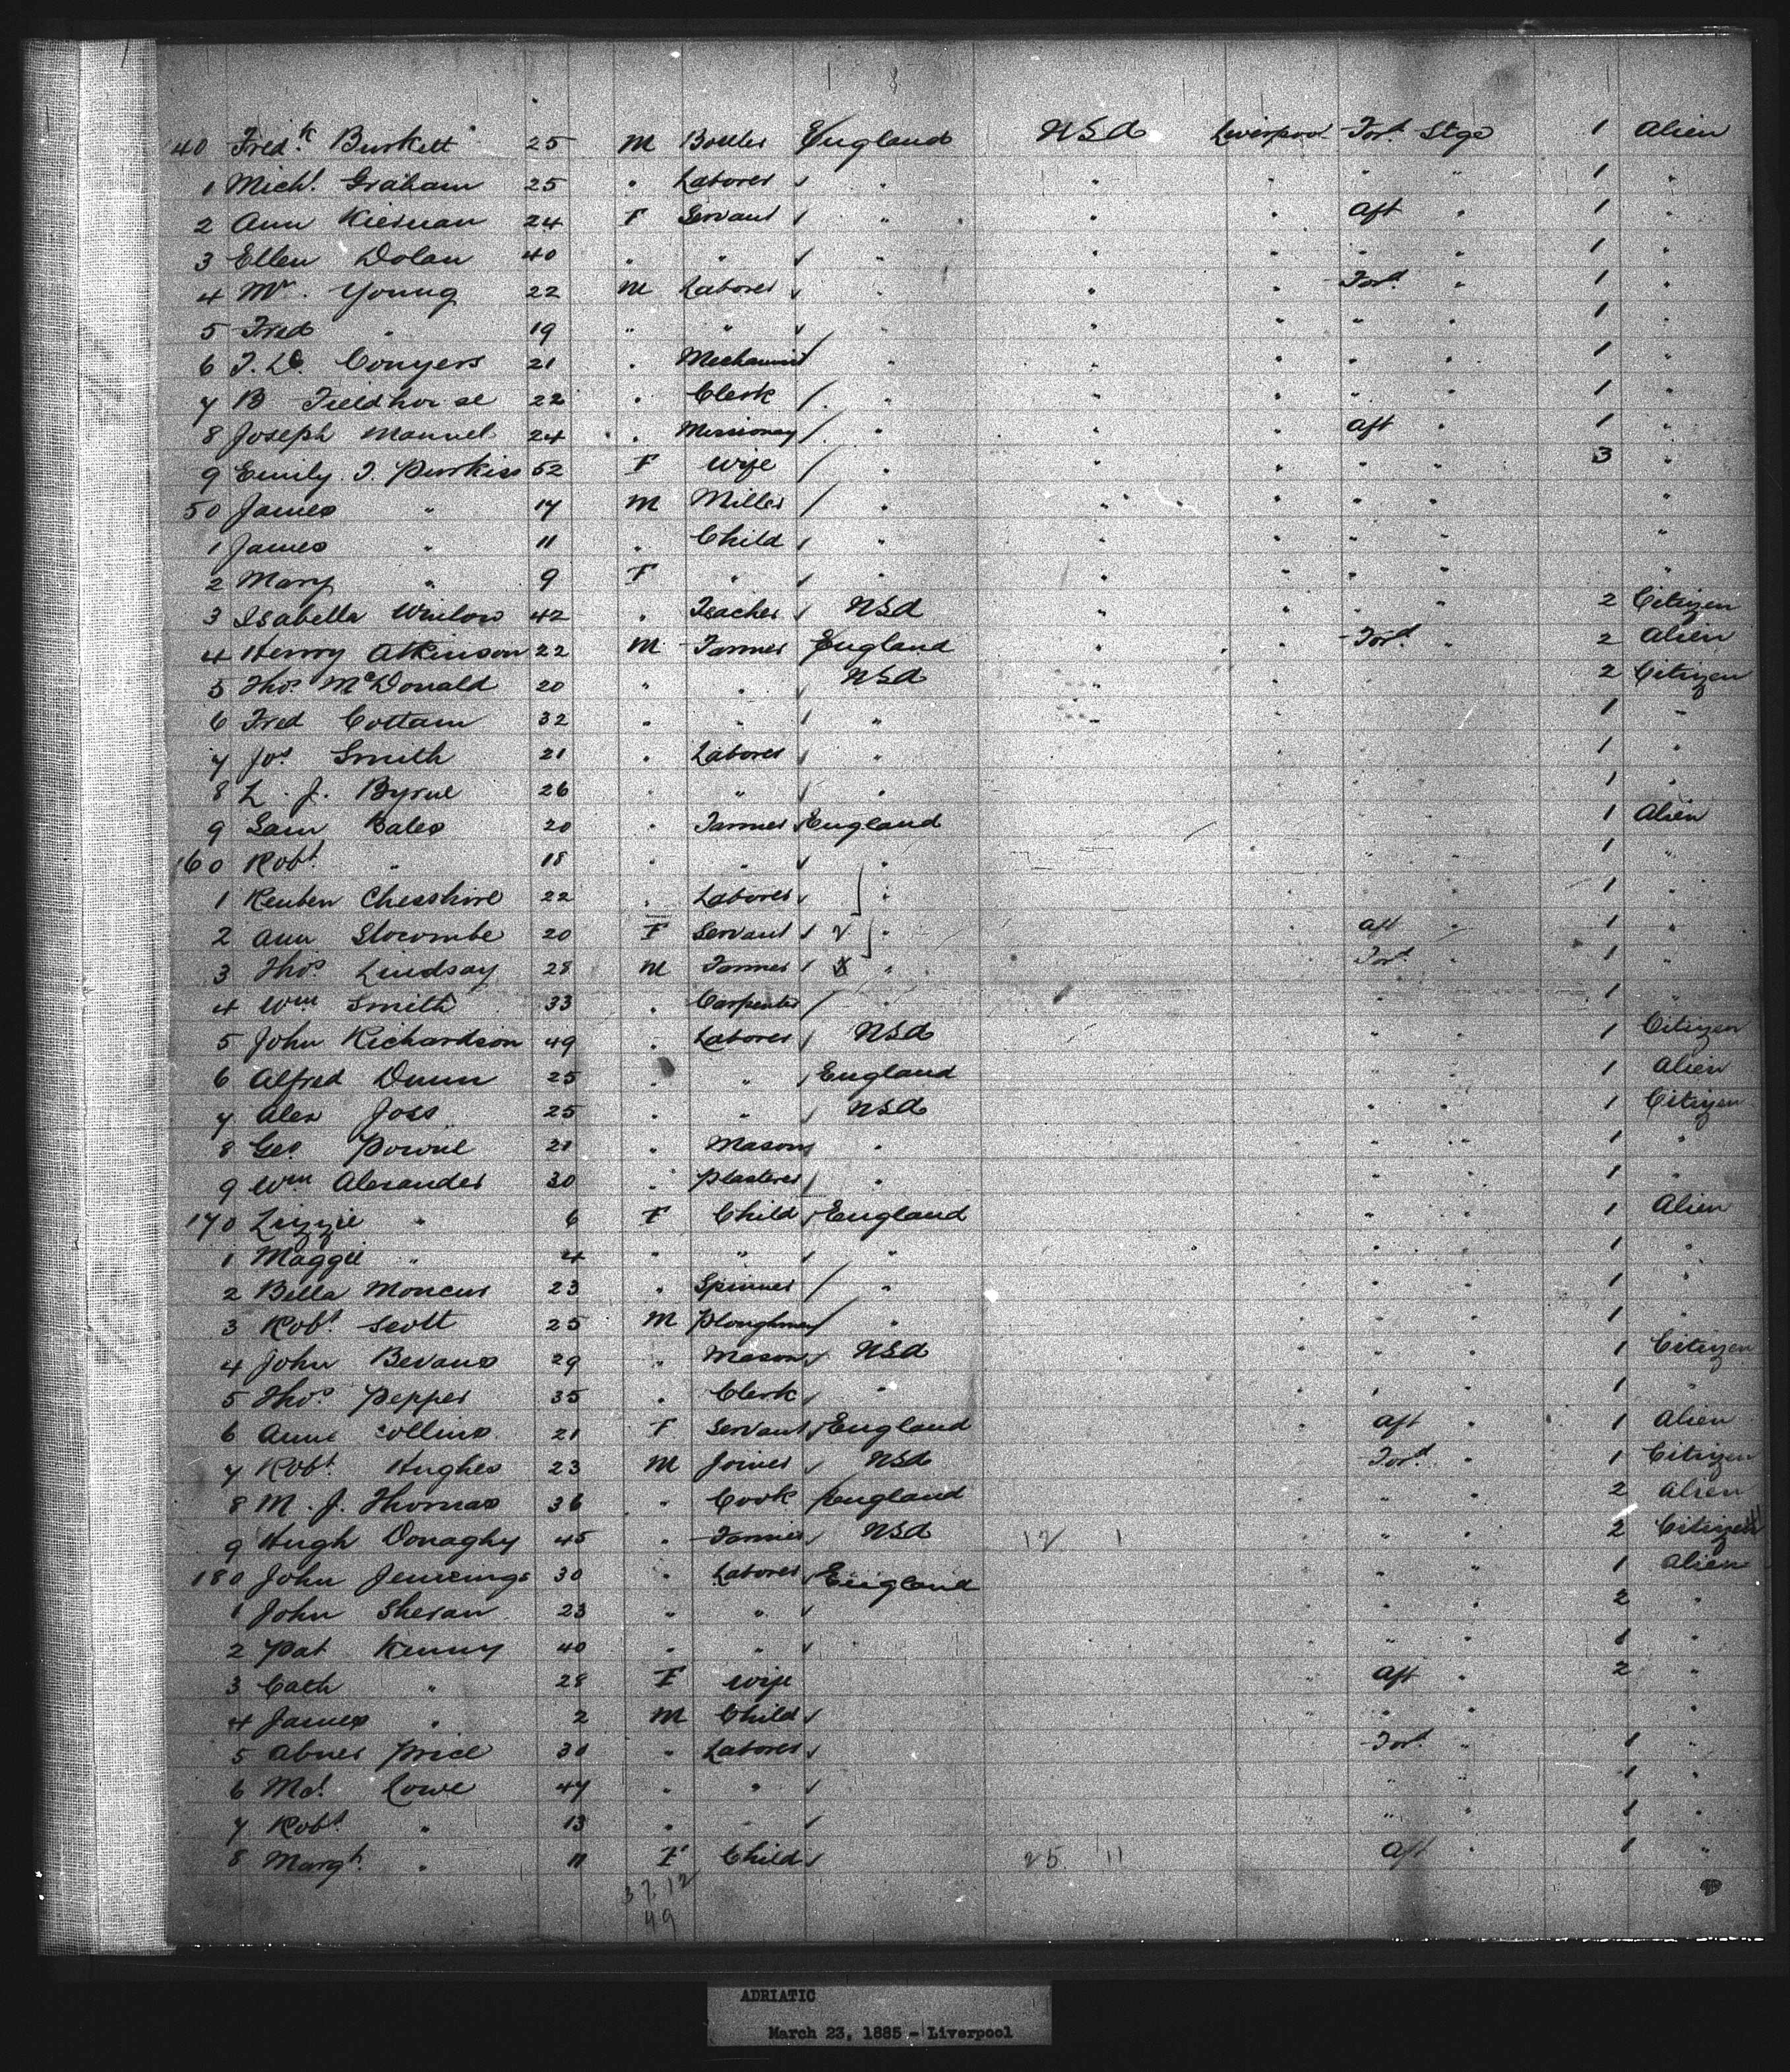 40 Fred.k Burkett 25 M Bottler England USA Liverpool For.d Stge 1 Alien
1 Mich.l Graham 25 " Laborer " " " " " 1 "
2 Ann Kiernan 24 F Servant " " " Aft " 1 "
3 Ellen Dolan 40 " " " " " " " 1 "
4 Young 22 M Laborer " " " For.d " 1 "
5 Fred " 19 " " " " " " " 1 "
6 Conyers 21 " Mechanic " " " " " 1 "
7 B Fieldhouse 22 " Clerk " " " " " 1 "
8 Joseph Manuel 24 " Missionary " " " Aft " 1 "
9 Emily J. Purkiss 52 F Wife " " " " " 3 "
50 James " 17 M Miller " " " " " "
1 James " 11 " Child " " " " " "
2 Mary " 9 F " " " " " " "
3 Isabella Winlow 42 " Teacher USA " " " " 2 Citizen
4 Henry Atkinson 22 M Farmer England " " For.d " 2 Alien
5 Tho.s McDonald 20 " " USA " " 2 Citizen
6 Fred Cottam 32 " " " " 1 "
7 Jo.s Smith 21 " Laborer " 1 "
8 L. J. Byrne 26 " " " 1 "
9 Sam Bales 20 " Farmer England 1 Alien
160 Rob.t " 18 " " " " " 1 "
1 Reuben Chesshire 22 " Laborer " " " 1 "
2 Ann Slocombe 20 F Servant " Aft " 1 "
3 Tho.s Lindsay 28 M Farmer " For.d " 1 "
4 Wm Smith 33 " Carpenter " " " 1 "
5 John Richardson 49 " Laborer USA " " 1 Citizen
6 Alfred Dunn 25 " " England " " 1 Alien
7 Alex Joss 25 " " USA " " 1 Citizen
8 Geo Powne 21 " Mason " " " 1 "
9 Wm Alexander 30 " Plasterer " " " 1 "
170 Lizzie " 6 F Child England " " 1 Alien
1 Maggie " 4 " " " " " 1 "
2 Bella Moncur 23 " Spinner " " " 1 "
3 Rob.t Scott 25 M Ploughman " " " 1 "
4 John Bevans 29 " Mason USA " " 1 Citizen
5 Tho.s Pepper 35 " Clerk " " " 1 "
6 Anne Collins 21 F Servant England " Aft " 1 Alien
7 Rob.t Hughes 23 M Joiner USA For.d " 1 Citizen
8 M. J. Thomas 36 " Cook England " " 2 Alien
9 Hugh Donaghy 45 " Farmer USA 12 1 " " 2 Citizen
180 John Jennings 30 " Laborer England " " 1 Alien
1 John Sheran 23 " " " " 2 "
2 Pat Kenny 40 " " " " 1 "
3 Cath " 28 F Wife " Aft " 2 "
4 James " 2 M Child " " " "
5 Abner Price 30 " Laborer For.d " 1 "
6 Lowe 47 " " " " 1 "
7 Rob.t " 13 " " " " 1 "
8 Marg.t " 11 F Child 25 11 Aft " 1 "
37 12
49
ADRIATIC
March 23, 1885 - Liverpool